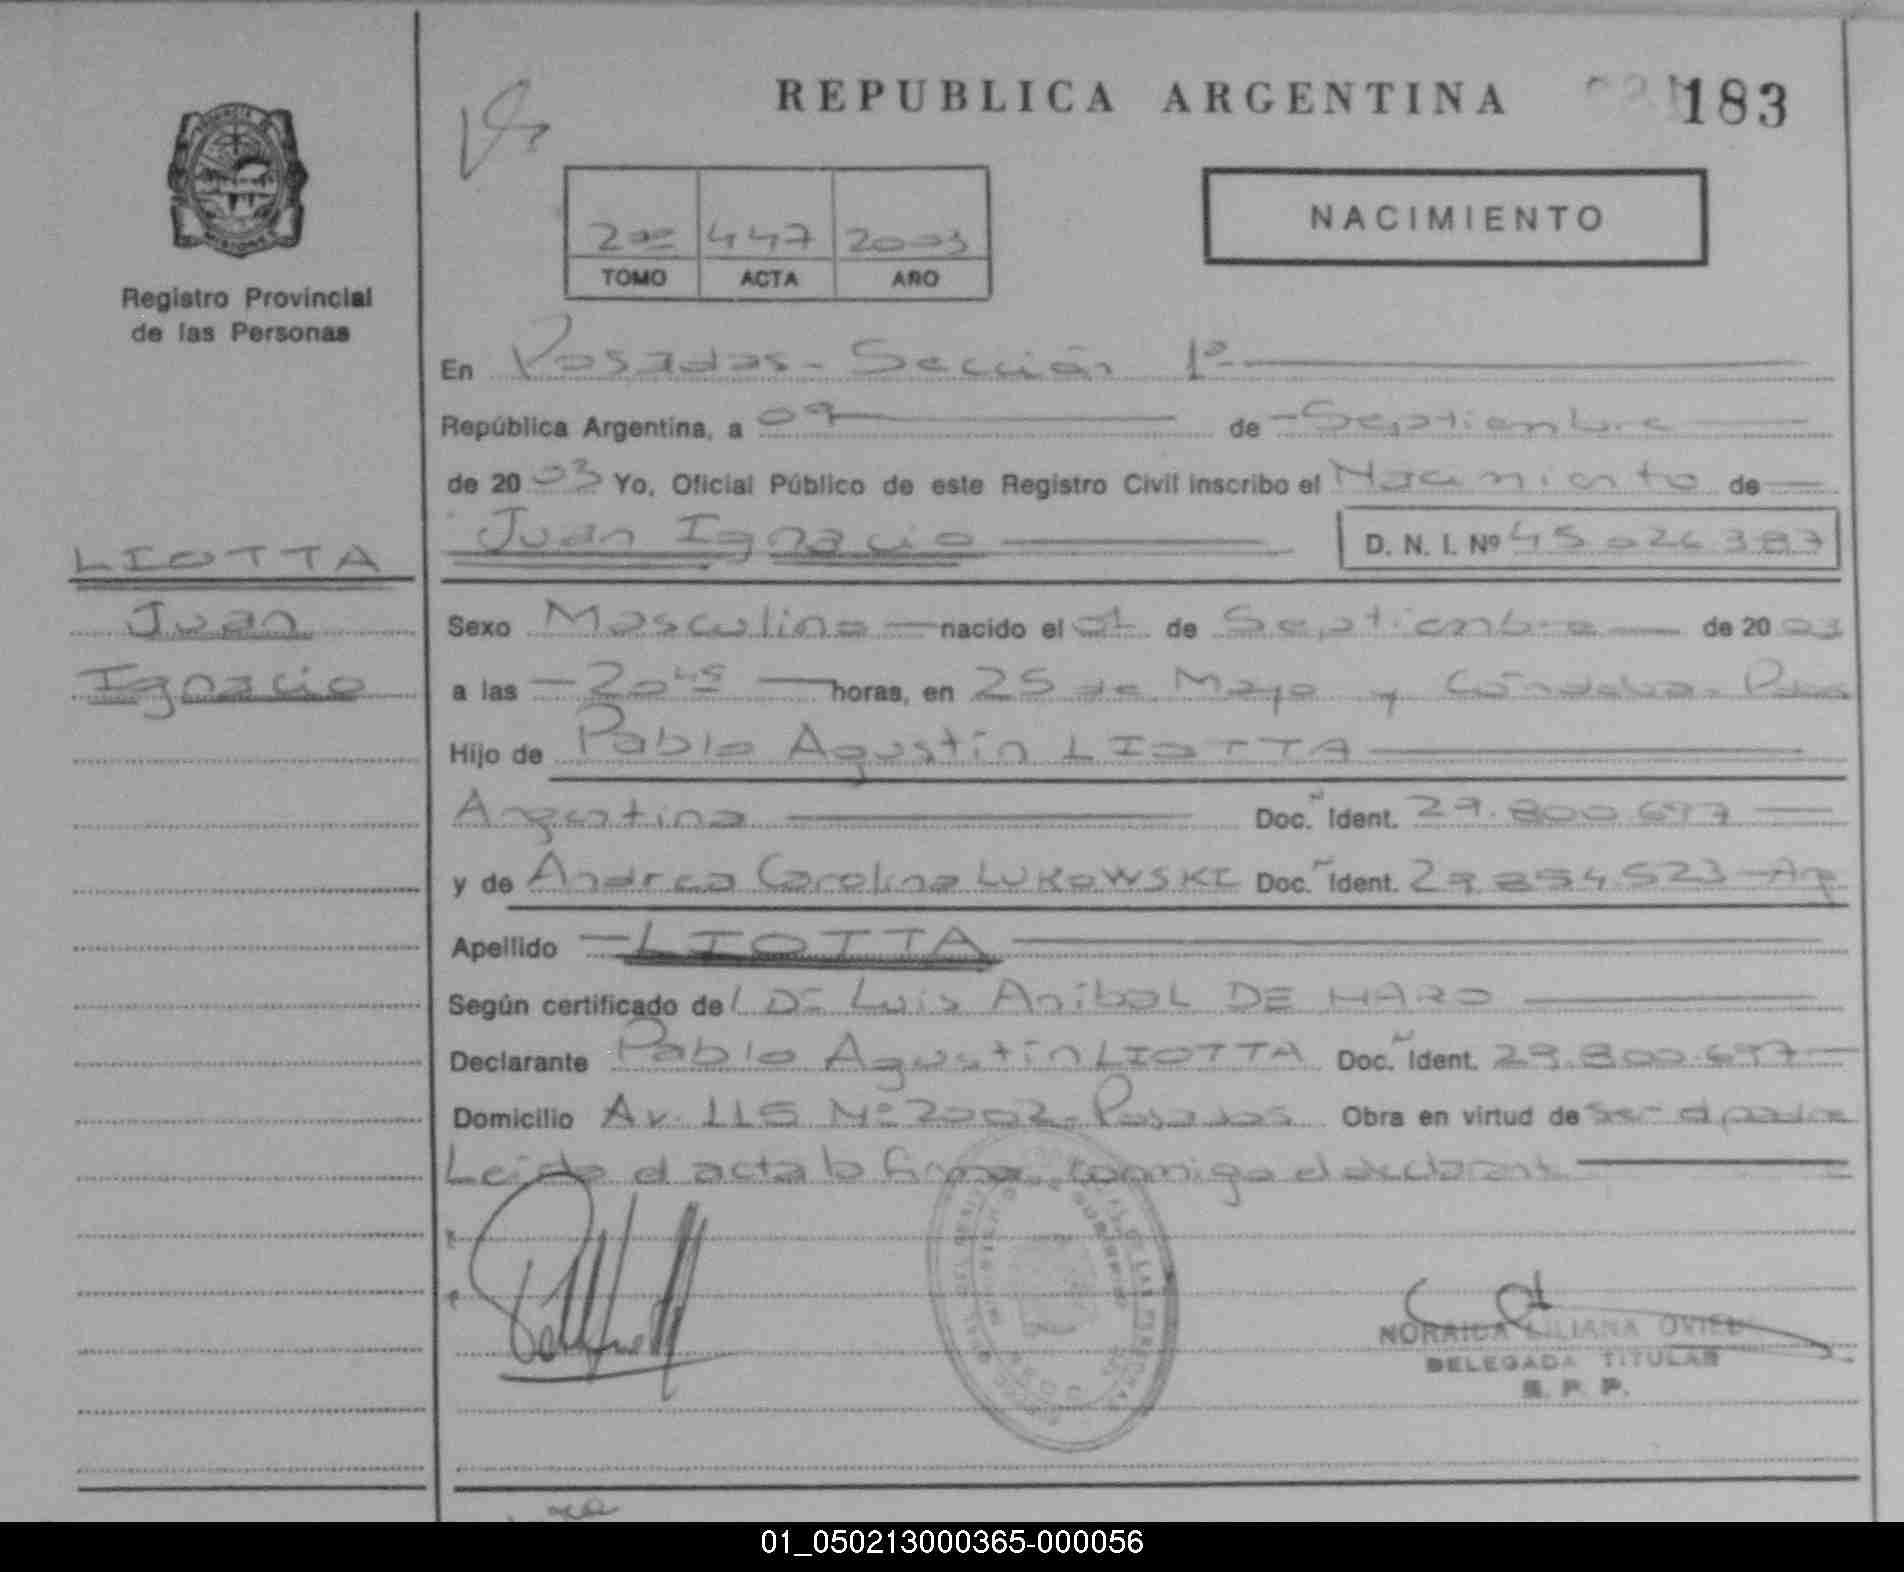 REPUBLICA ARGENTINA 183
NACIMIENTO
447 2003
TOMO ACTA AÑO
Registro Provincial
de las Personas
En Posadas - Sección 1º
República Argentina, a 09 de Septiembre
de 2003 Yo, Oficial Público de este Registro Civil inscribo el Nacimiento de
Juan Ignacio D. N. I. Nº 45026387
LIOTTA
Juan
Ignacio
Sexo Masculino nacido el 01 de Septiembre de 2003
a las 20 45 horas, en 25 de Mayo y Córdoba -
Hijo de Pablo Agustín LIOTTA
Argentina Doc. Ident. 29.800.697
y de Andrea Carolina LUKOWSKI Doc. Ident. 29.894.523 - Arg
Apellido - LIOTTA
Según certificado de Luis Anibal DE HARO
Declarante Pablo Agustín LIOTTA Doc. Ident. 29.800.697
Domicilio Av. 115 Nº 2002 - Posadas Obra en virtud de ser el padre
Leida el acta la firma conmigo el declarante
NORAIDA LILIANA
DELEGADA TITULAR
R. P. P.
01_050213000365-000056